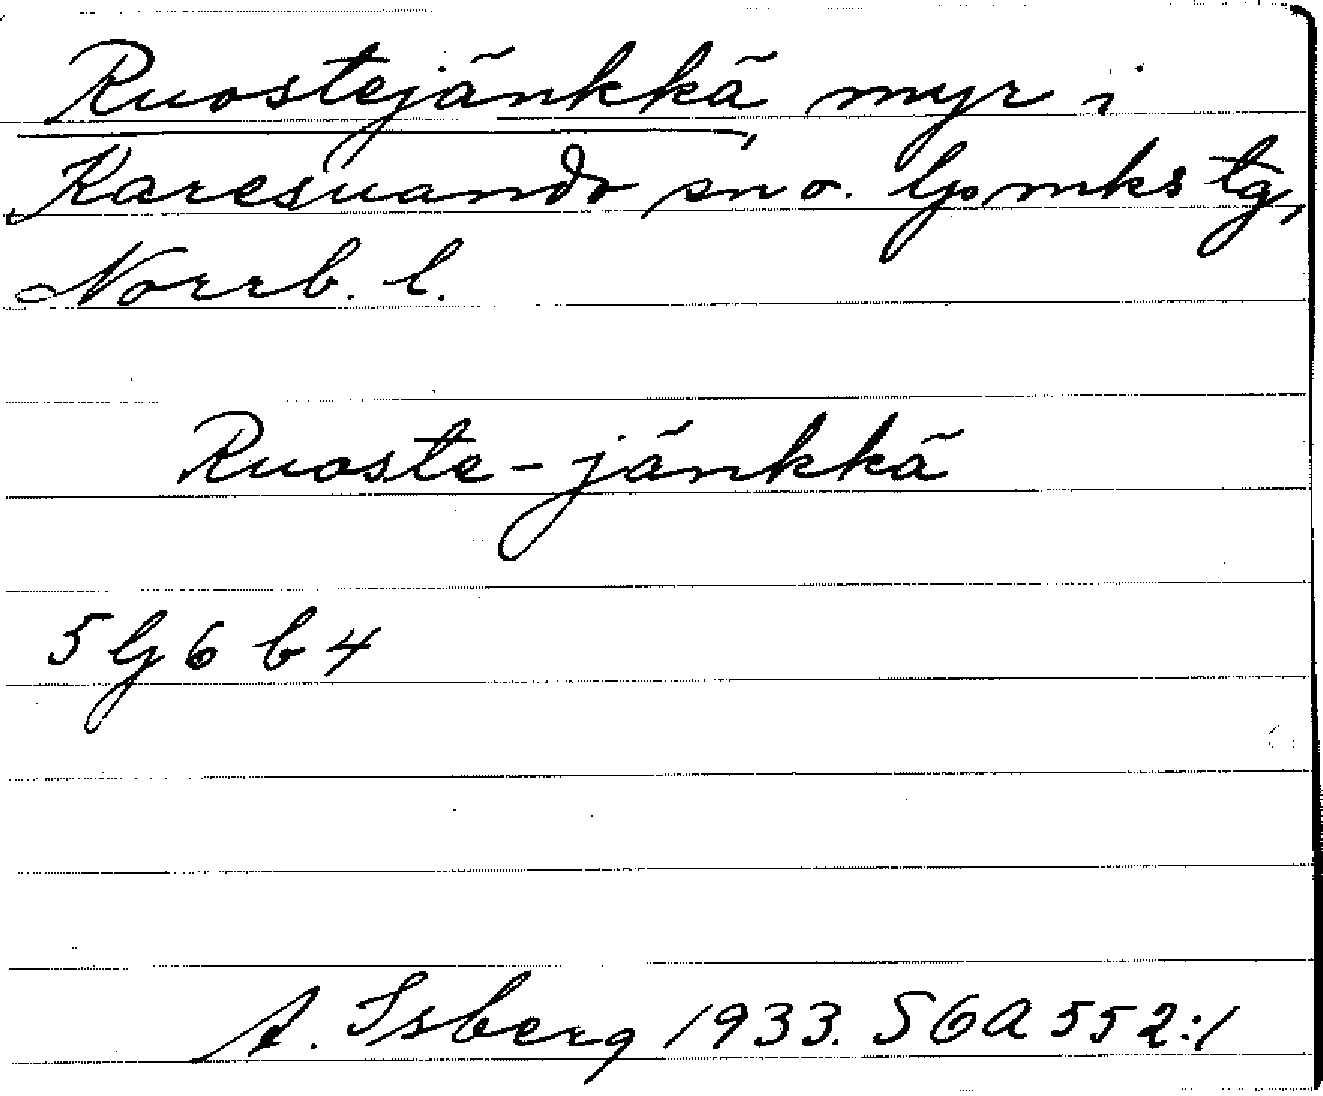 Ruostejänkkä, myr i
Karesuando sn o. lpmks tg,
Norrb. l.
Ruoste-jänkkä
5 G 6 b 4
A. Isberg 1933. SGA 552:1